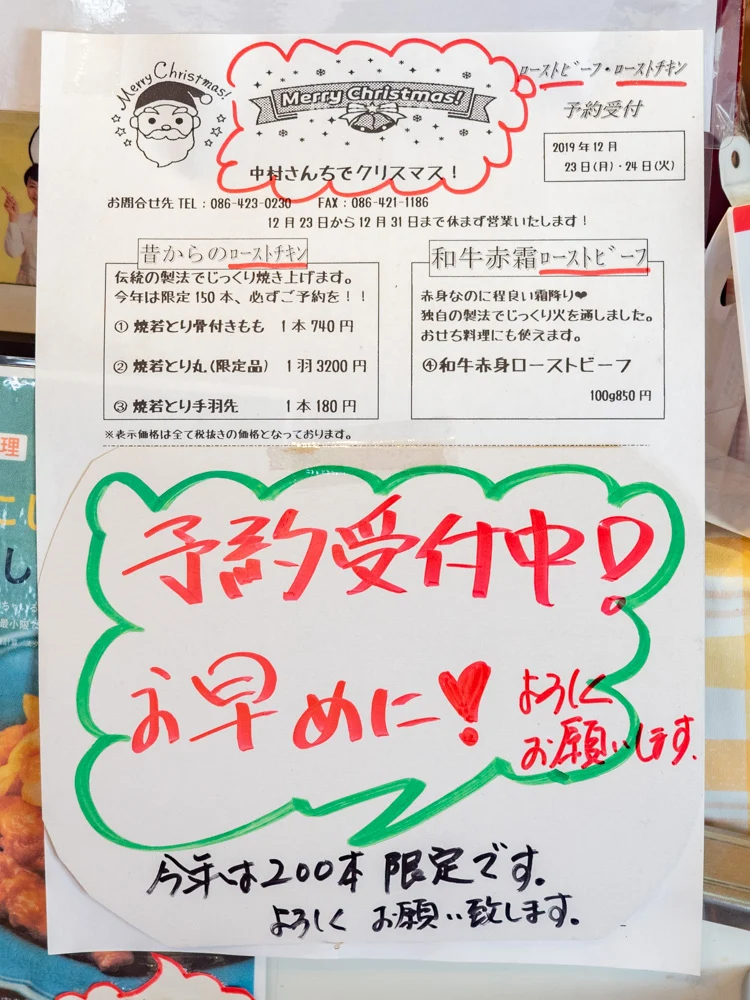 Merry Christmas!
Merry Christmas!
中村さんちでクリスマス！
ローストビーフ・ローストチキン
予約受付
2019年12月
23日(月)・24日(火)
お問合せ先 TEL：086-423-0230 FAX：086-421-1186
12月23日から12月31日まで休まず営業いたします！
昔からのローストチキン
伝統の製法でじっくり焼き上げます。
今年は限定150本、必ずご予約を！！
① 焼若とり骨付きもも 1本740円
② 焼若とり丸(限定品) 1羽3200円
③ 焼若とり手羽先 1本180円
和牛赤霜ローストビーフ
赤身なのに程良い霜降り❤
独自の製法でじっくり火を通しました。
おせち料理にも使えます。
④和牛赤身ローストビーフ
100g850円
※表示価格は全て税抜きの価格となっております。
予約受付中!
お早めに!
よろしく
お願いします.
今年は200本 限定です.
よろしく お願い致します.
理